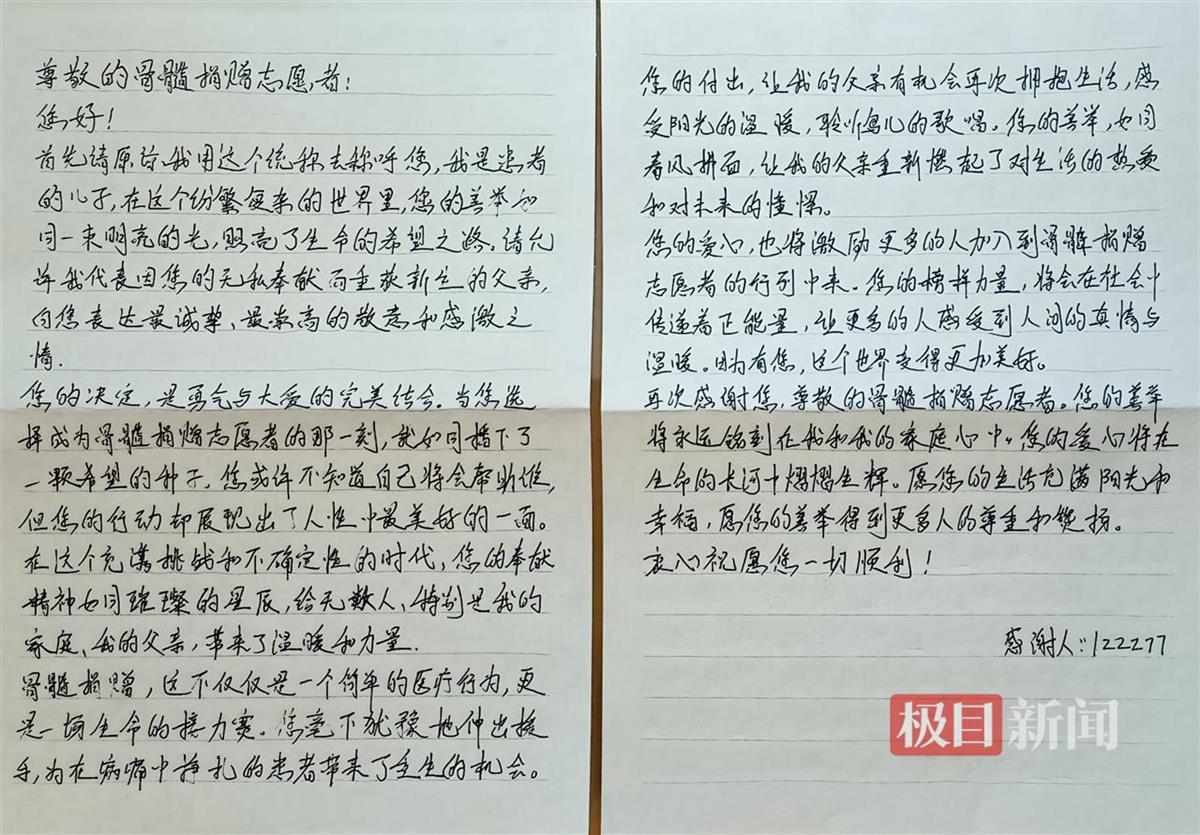 尊敬的骨髓捐赠志愿者：
您好！
首先请原谅我用这个统称去称呼您，我是患者
的儿子，在这个纷繁复杂的世界里，您的善举如
同一束明亮的光，照亮了生命的希望之路。请允
许我代表因您的无私奉献而重获新生的父亲，
向您表达最诚挚、最崇高的敬意和感激之
情.
您的决定，是勇气与大爱的完美结合。当您选
择成为骨髓捐赠志愿者的那一刻，就如同播下了
一颗希望的种子。您或许不知道自己将会帮助谁，
但您的行动却展现出了人性中最美好的一面。
在这个充满挑战和不确定性的时代，您的奉献
精神如同璀璨的星辰，给无数人、特别是我的
家庭、我的父亲，带来了温暖和力量.
骨髓捐赠，这不仅仅是一个简单的医疗行为，更
是一场生命的接力赛。您毫不犹豫地伸出援
手，为在病痛中挣扎的患者带来了重生的机会。
您的付出，让我的父亲有机会再次拥抱生活，感
受阳光的温暖，聆听鸟儿的歌唱。您的善举，如同
春风拂面，让我的父亲重新燃起了对生活的热爱
和对未来的憧憬。
您的爱心，也将激励更多的人加入到骨髓捐赠
志愿者的行列中来。您的榜样力量，将会在社会中
传递着正能量，让更多的人感受到人间的真情与
温暖。因为有您，这个世界变得更加美好。
再次感谢您，尊敬的骨髓捐赠志愿者。您的善举
将永远铭刻在我和我的家庭心中。您的爱心将在
生命的长河中熠熠生辉。愿您的生活充满阳光和
幸福，愿您的善举得到更多人的尊重和赞扬。
衷心祝愿您一切顺利！
感谢人：122277
极目新闻